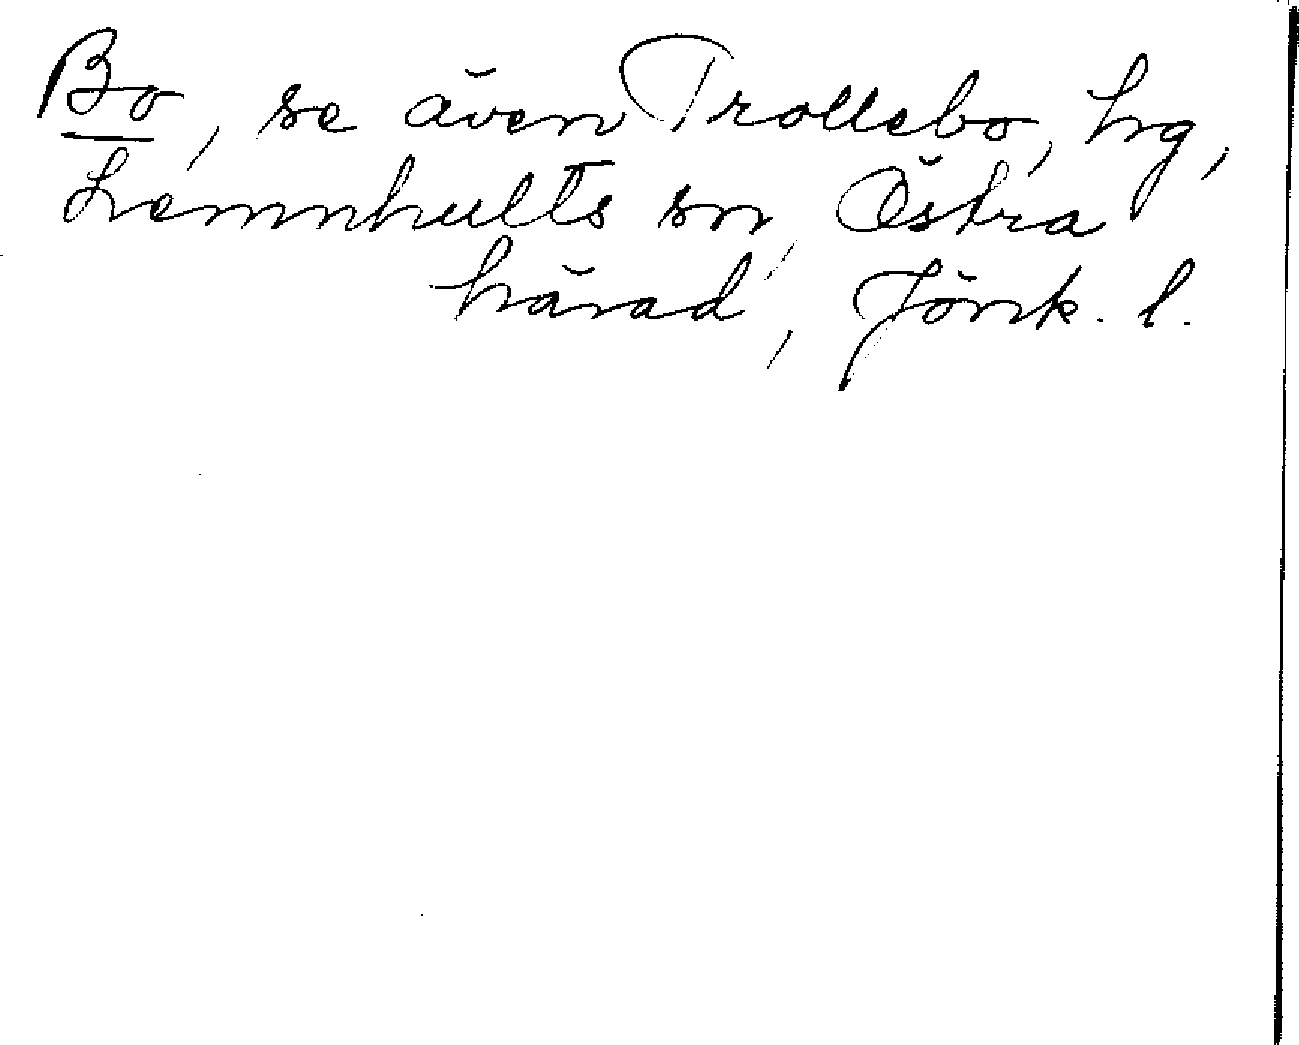 Bo, se även Trollebo, hg,
Lemnhults sn, Östra
härad, Jönk. l.